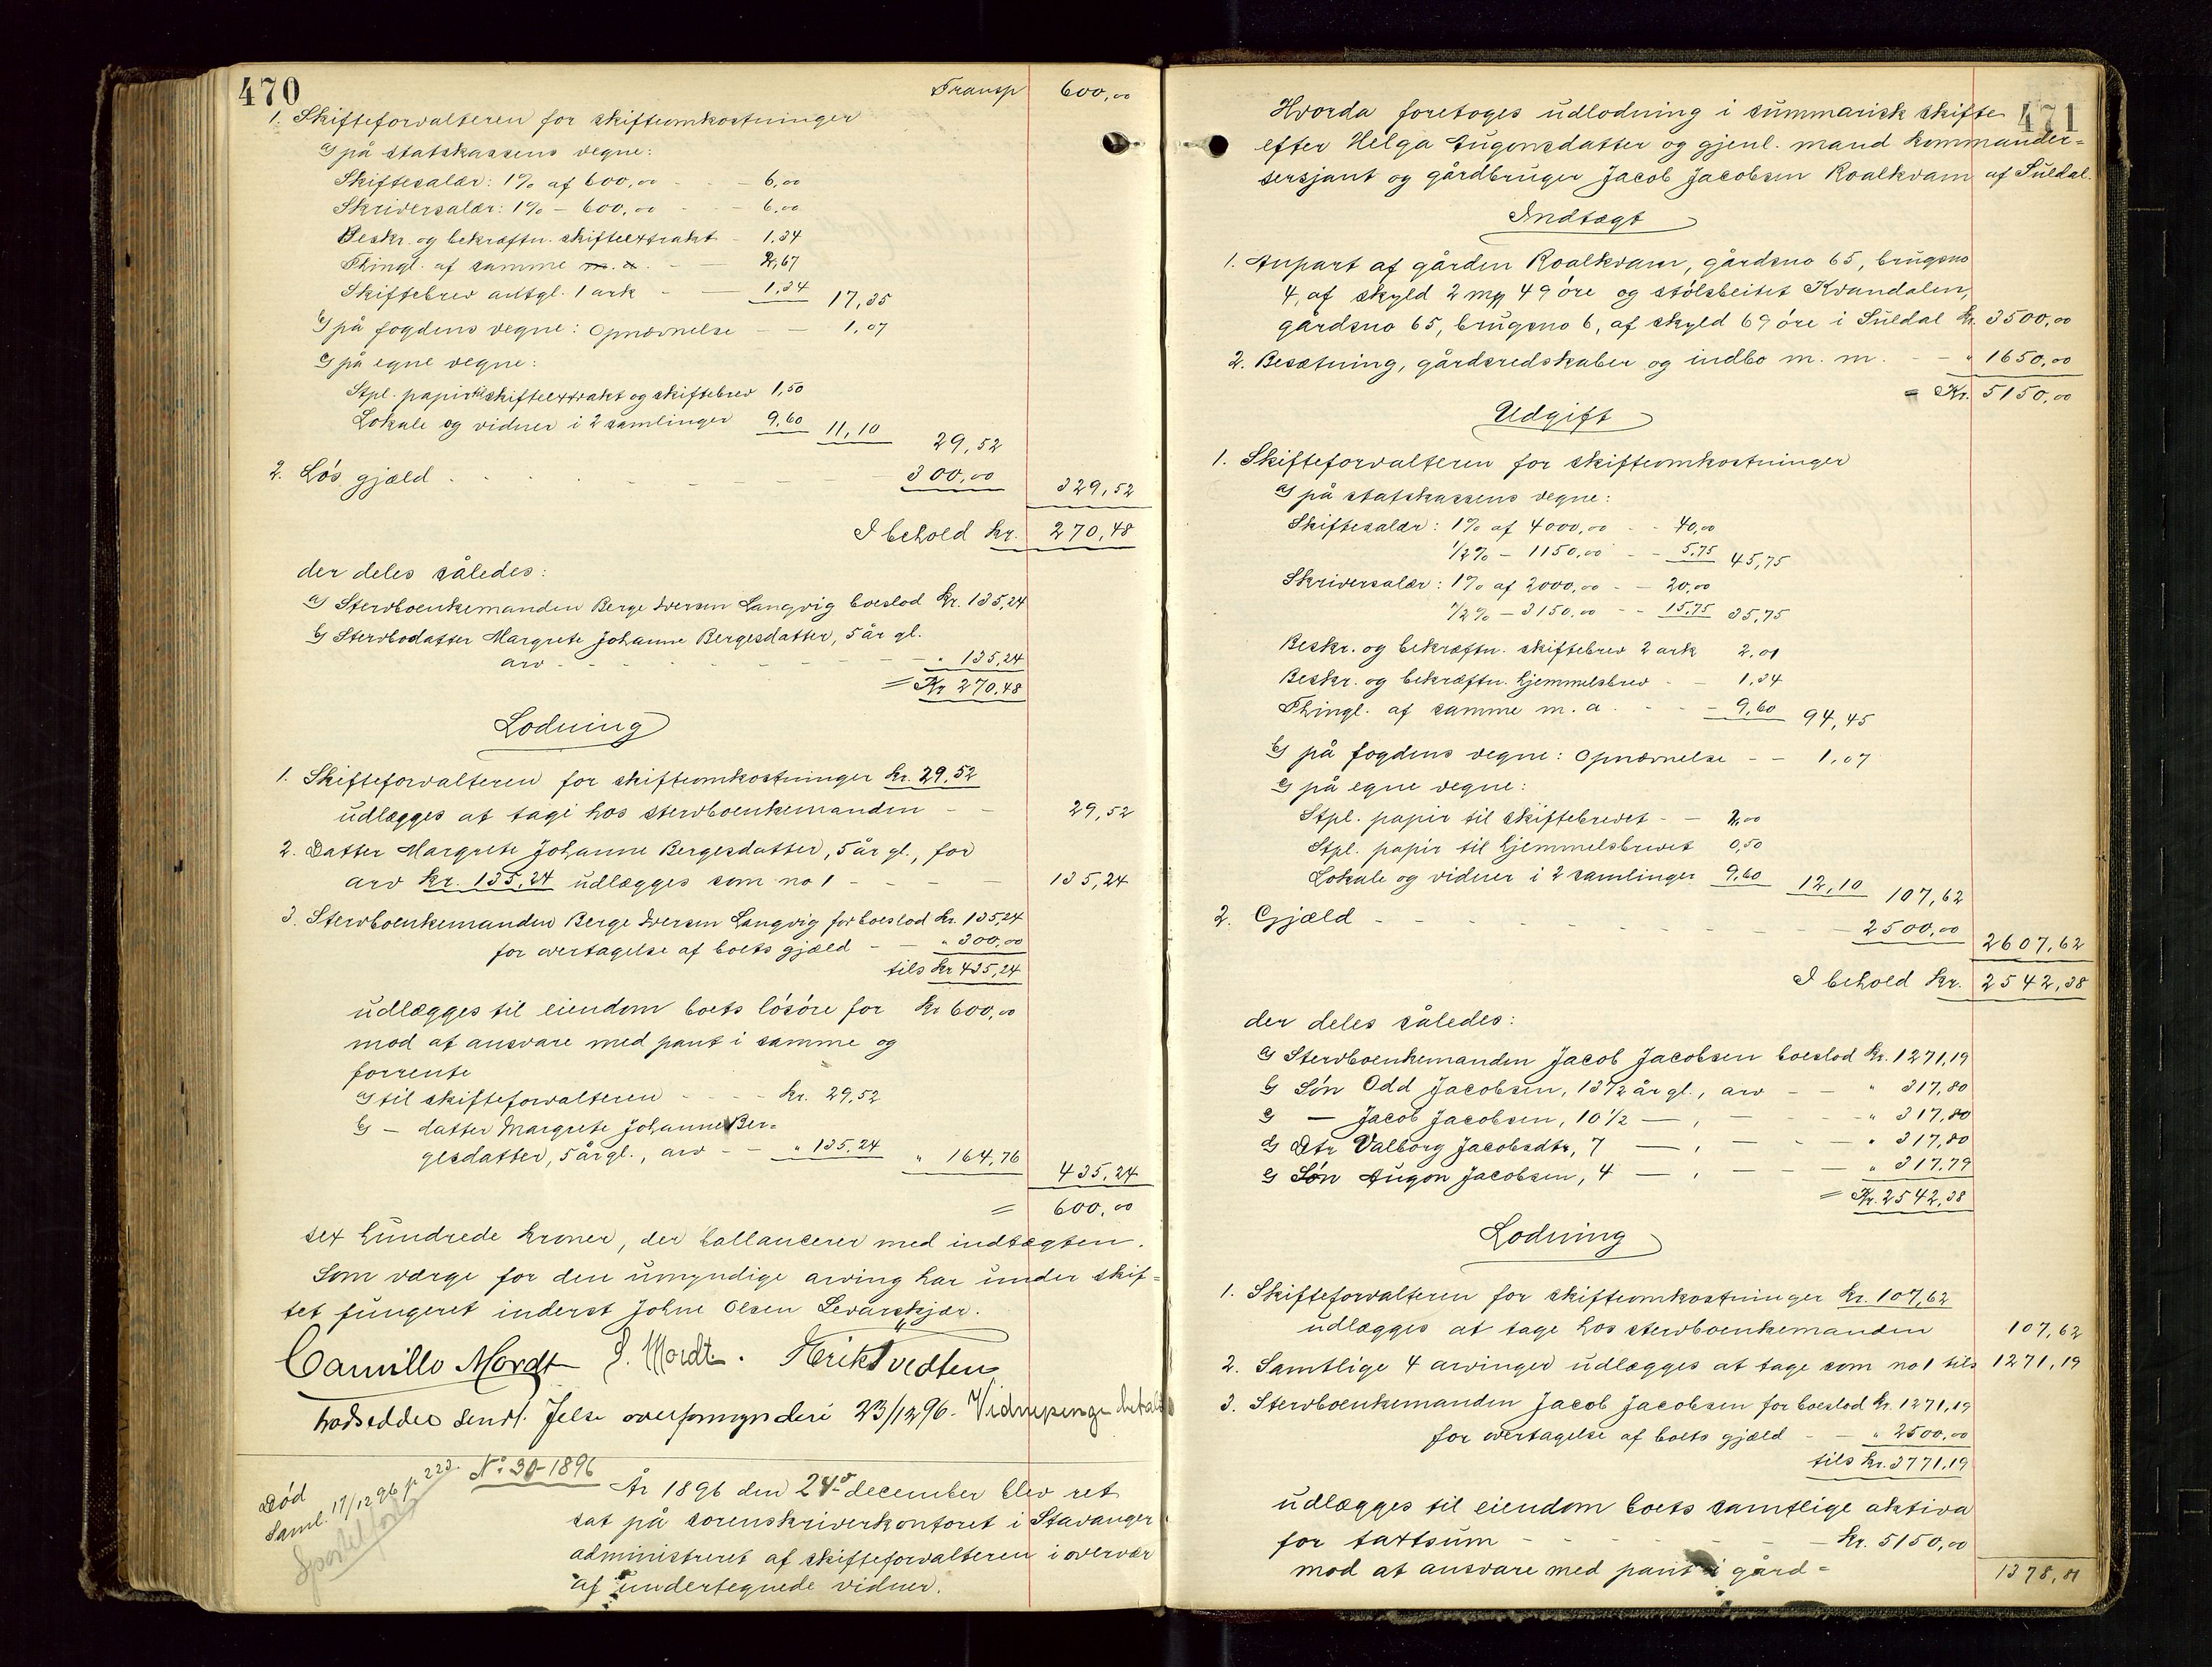 470
Transp 600,00
1. Skifteforvalteren for skifteomkostninger
a) på statskassens vegne:
Skiftesalær: 1% af 600,00 - - 6,00
Skriversalær: 1% - 600,00 - - 6,00
Beskr. og bekræftn. skifteextrakt - 1,34
Thingl. af samme m. a. - - 2,67
Skiftebrev antgl. 1 ark - - 1,34 17,35
b) på fogdens vegne: Opnævnelse - - 1,07
c) på egne vegne:
Stpl. papir til skifteextrakt og skiftebrev 1,50
Lokale og vidner i 2 samlinger 9,60 11,10 29,52
2. Løs gjæld - - - - - - 300,00 329,52
I behold Kr. 270,48
der deles således:
a) Stervboenkemanden Berge Iversen Langvig boeslod Kr. 135,24
b) Stervbodatter Margrete Johanne Bergesdatter, 5 år gl.
arv - - - - - - " 135,24
= Kr 270,48
Lodning
1. Skifteforvalteren for skifteomkostninger Kr. 29,52
udlægges at tage hos stervboenkemanden - - 29,52
2. Datter Margrete Johanne Bergesdatter, 5 år gl., for
arv Kr. 135,24 udlægges som no 1 - - - - 135,24
3. Stervboenkemanden Berge Iversen Langvig for boeslod Kr. 135,24
for overtagelse af boets gjæld - - " 300,00
tils Kr 435,24
udlægges til eiendom boets løsøre for Kr 600,00
mod at ansvare med pant i samme og
forrente
a) til skifteforvalteren - - - - Kr. 29,52
b) - datter Margrete Johanne Ber=
gesdatter, 5 år gl., arv - - " 135,24 " 164,76 435,24
= 600,00
sex hundrede kroner, der ballancerer med indtægten.
Som værge for den umyndige arving har under skif=
tet fungeret inderst Johne Olsen Sevarskjær.
Camillo Mordt J. Mordt. Erik Tvedten
Lodseddel sendt Jelse overformynderi 23/12 96. Vidnepenge betalt
Død
Saml. 17/12 96 p. 223.
No 30-1896
År 1896 den 24de december blev ret
sat på sorenskriverkontoret i Stavanger
administreret af skifteforvalteren i overvær
af undertegnede vidner.
471
Hvorda foretoges udlodning i summarisk skifte
efter Helga Augonsdatter og gjenl. mand kommander=
sersjant og gårdbruger Jacob Jacobsen Roalkvam af Suldal.
Indtægt
1. Anpart af gården Roalkvam, gårdsno 65, brugsno
4, af skyld 2 mk 49 øre og stølsbeitet Kvandalen,
gårdsno 65, brugsno 6, af skyld 69 øre i Suldal Kr. 3500,00
2. Besætning, gårdsredskaber og indbo m. m. - - " 1650,00
= Kr. 5150,00
Udgift
1. Skifteforvalteren for skifteomkostninger
a) på statskassens vegne:
Skiftesalær: 1% af 4000,00 - - 40,00
1/2% - 1150,00 - - 5,75 45,75
Skriversalær: 1% af 2000,00 - - 20,00
1/2% - 3150,00 - - 15,75 35,75
Beskr. og bekræftn. skiftebrev 2 ark 2,01
Beskr. og bekræftn. hjemmelsbrev - - 1,34
Thingl. af samme m. a. - - - 9,60 94,45
b) på fogdens vegne: Opnævnelse - - 1,07
c) på egne vegne:
Stpl. papir til skiftebrevet - - 2,00
Stpl. papir til hjemmelsbrevet 0,50
Lokale og vidner i 2 samlinger 9,60 12,10 107,62
2. Gjæld - - - - - - - - 2500,00 2607,62
I behold Kr. 2542,38
der deles således:
a) Stervboenkemanden Jacob Jacobsen boeslod Kr. 1271,19
b) Søn Odd Jacobsen, 13 1/2 år gl., arv - - " 317,80
c) — Jacob Jacobsen, 10 1/2 — , — - - " 317,80
d) Dtr Valborg Jacobsdtr, 7 — , — - - " 317,80
e) Søn Augon Jacobsen, 4 — , — - - " 317,79
= Kr. 2542,38
Lodning
1. Skifteforvalteren for skifteomkostninger Kr. 107,62
udlægges at tage hos stervboenkemanden 107,62
2. Samtlige 4 arvinger udlægges at tage som no 1 tils 1271,19
3. Stervboenkemanden Jacob Jacobsen for boeslod Kr. 1271,19
for overtagelse af boets gjæld - - " 2500,00
tils Kr. 3771,19
udlægges til eiendom boets samtlige aktiva
for taxtsum - - - - - - Kr. 5150,00
mod at ansvare med pant i gård=
1378,81